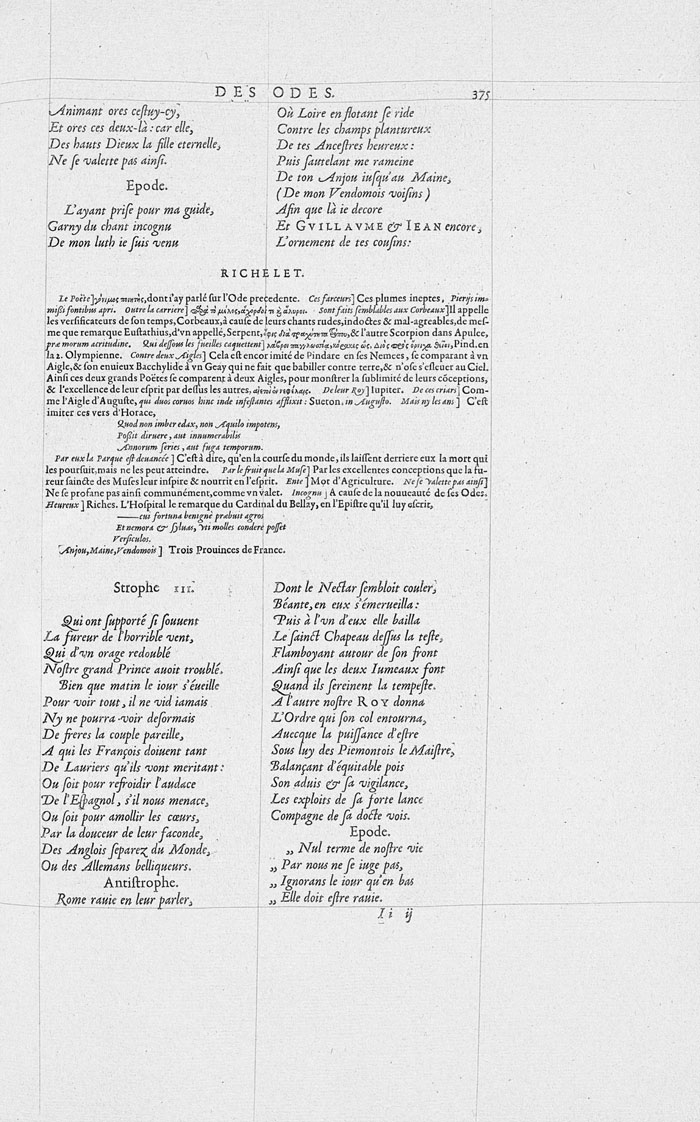 DES ODES.
375
Animant ores cestuy-cy,
Et ores ces deux-là : car elle,
Des hauts Dieux la fille eternelle,
Ne se valette pas ainsi.
Epode.
L'ayant prise pour ma guide,
Garny du chant incognu
De mon luth ie suis venu
Où Loire en flotant se ride
Contre les champs plantureux
De tes Ancestres heureux :
Puis sautelant me rameine
De ton Anjou iusqu'au Maine,
(De mon Vendomois voisins)
Afin que là ie decore
Et GVILLAVME & IEAN encore,
L'ornement de tes cousins:
RICHELET.
Le Poëte] dont i'ay parlé sur l'Ode precedente. Ces farceurs] Ces plumes ineptes, Pierijs im-
missi fontibus apri. Outre la carriere] Sont faits semblables aux Corbeaux] Il appelle
les versificateurs de son temps, Corbeaux, à cause de leurs chants rudes, indoctes & mal-agreables, de mes-
me que remarque Eustathius, d'vn appellé, Serpent, & l'autre Scorpion dans Apulee,
præ morum acritudine. Qui dessous les fueilles caquettent] Pind. en
la 2. Olympienne. Contre deux Aigles] Cela est encor imité de Pindare en ses Nemees, se comparant à vn
Aigle, & son enuieux Bacchylide à vn Geay qui ne fait que babiller contre terre, & n'ose s'esleuer au Ciel.
Ainsi ces deux grands Poëtes se comparent à deux Aigles, pour monstrer la sublimité de leurs cõceptions,
& l'excellence de leur esprit par dessus les autres, De leur Roy] Iupiter. De ces criars] Com-
me l'Aigle d'Auguste, qui duos coruos hinc inde infestantes afflixit : Sueton. in Augusto. Mais ny les ans] C'est
imiter ces vers d'Horace,
Quod non imber edax, non Aquilo impotens,
Possit diruere, aut innumerabilis
Annorum series, aut fuga temporum.
Par eux la Parque est deuancée] C'est à dire, qu'en la course du monde, ils laissent derriere eux la mort qui
les poursuit, mais ne les peut atteindre. Par le fruit que la Muse] Par les excellentes conceptions que la fu-
reur saincte des Muses leur inspire & nourrit en l'esprit. Ente] Mot d'Agriculture. Ne se valette pas ainsi]
Ne se profane pas ainsi communément, comme vn valet. Incognu] A cause de la nouueauté de ses Odes.
Heureux] Riches. L'Hospital le remarque du Cardinal du Bellay, en l'Epistre qu'il luy escrit,
——cui fortuna benignè præbuit agros
Et nemora & syluas, vti molles condere posset
Versiculos.
Anjou, Maine, Vendomois] Trois Prouinces de France.
Strophe III.
Qui ont supporté si souuent
La fureur de l'horrible vent,
Qui d'vn orage redoublé
Nostre grand Prince auoit troublé.
Bien que matin le iour s'éueille
Pour voir tout, il ne vid iamais
Ny ne pourra voir desormais
De freres la couple pareille,
A qui les François doiuent tant
De Lauriers qu'ils vont meritant :
Ou soit pour refroidir l'audace
De l'Espagnol, s'il nous menace,
Ou soit pour amollir les cœurs,
Par la douceur de leur faconde,
Des Anglois separez du Monde,
Ou des Allemans belliqueurs.
Antistrophe.
Rome rauie en leur parler,
Dont le Nectar sembloit couler,
Béante, en eux s'émerueilla :
Puis à l'vn d'eux elle bailla
Le sainct Chapeau dessus la teste,
Flamboyant autour de son front
Ainsi que les deux Iumeaux font
Quand ils sereinent la tempeste.
A l'autre nostre ROY donna
L'Ordre qui son col entourna,
Auecque la puissance d'estre
Sous luy des Piemontois le Maistre,
Balançant d'équitable pois
Son aduis & sa vigilance,
Les exploits de sa forte lance
Compagne de sa docte vois.
Epode.
„ Nul terme de nostre vie
„ Par nous ne se iuge pas,
„ Ignorans le iour qu'en bas
„ Elle doit estre rauie.
Ii ij